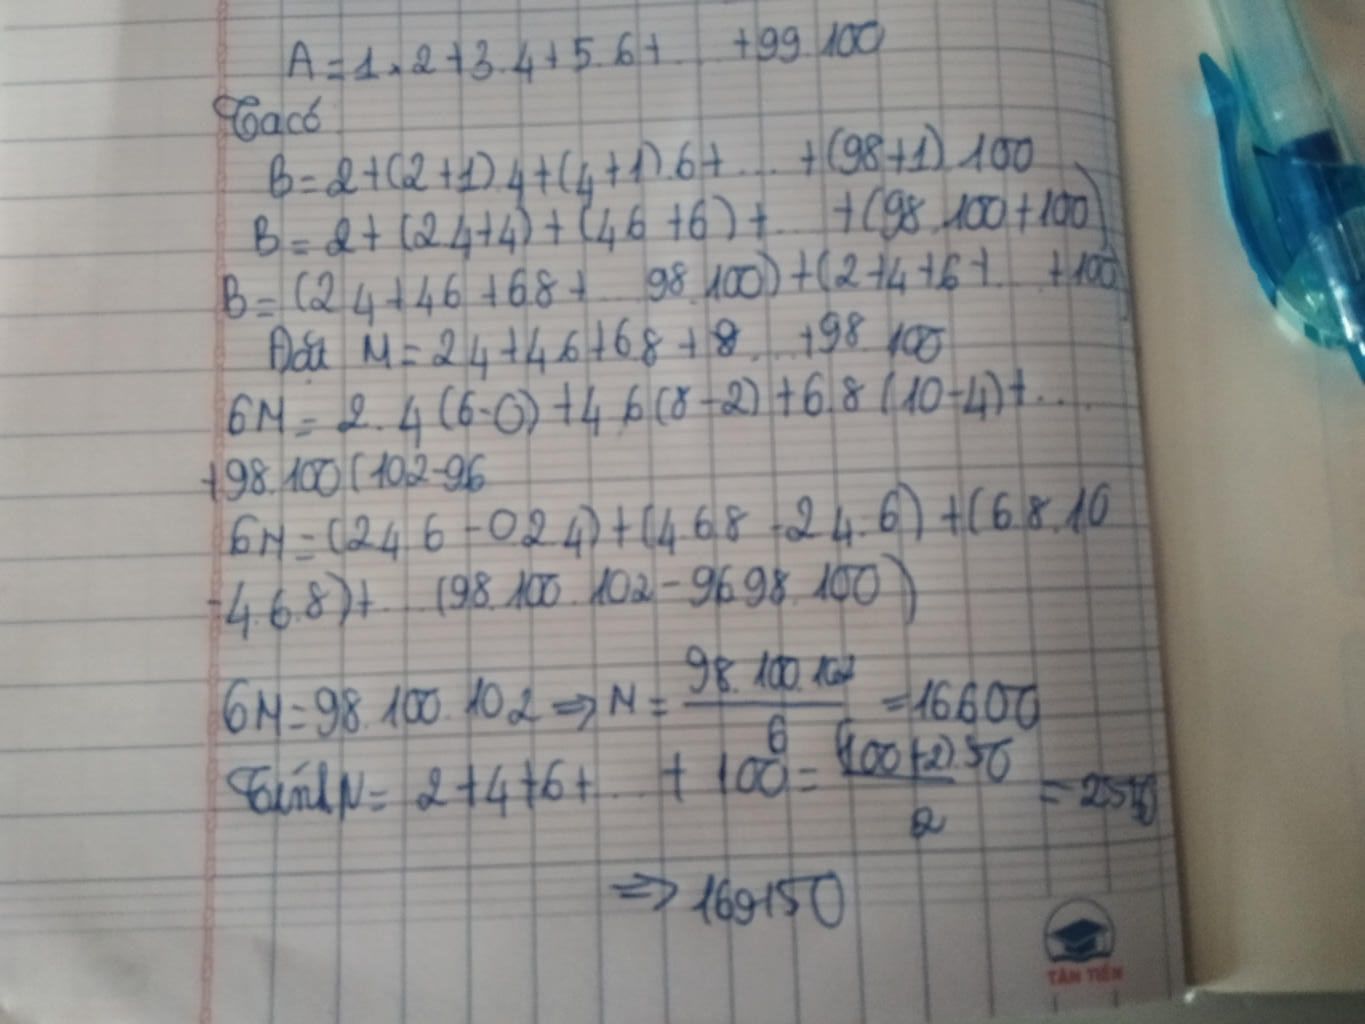 A = 1.2 + 3.4 + 5.6 + ... + 99.100
Ta có
B = 2 + (2+1).4 + (4+1).6 + ... + (98+1).100
B = 2 + (2.4+4) + (4.6+6) + ... + (98.100+100)
B = (2.4 + 4.6 + 6.8 + ... 98.100) + (2+4+6+ ... +100
Đặt M = 2.4 + 4.6 + 6.8 + 8 ... + 98.100
6M = 2.4(6-0) + 4.6(8-2) + 6.8(10-4) + ...
+98.100(102-96
6M = (2.4.6 - 0.2.4) + (4.6.8 - 2.4.6) + (6.8.10
-4.6.8) + ... (98.100.102 - 96.98.100)
6M = 98.100.102 ⇒ M = 98.100.102 / 6 = 16600
Tính N = 2+4+6+ ... + 100 = (100+2).50 / 2 = 2550
⇒ 169150
TÂN TIẾN